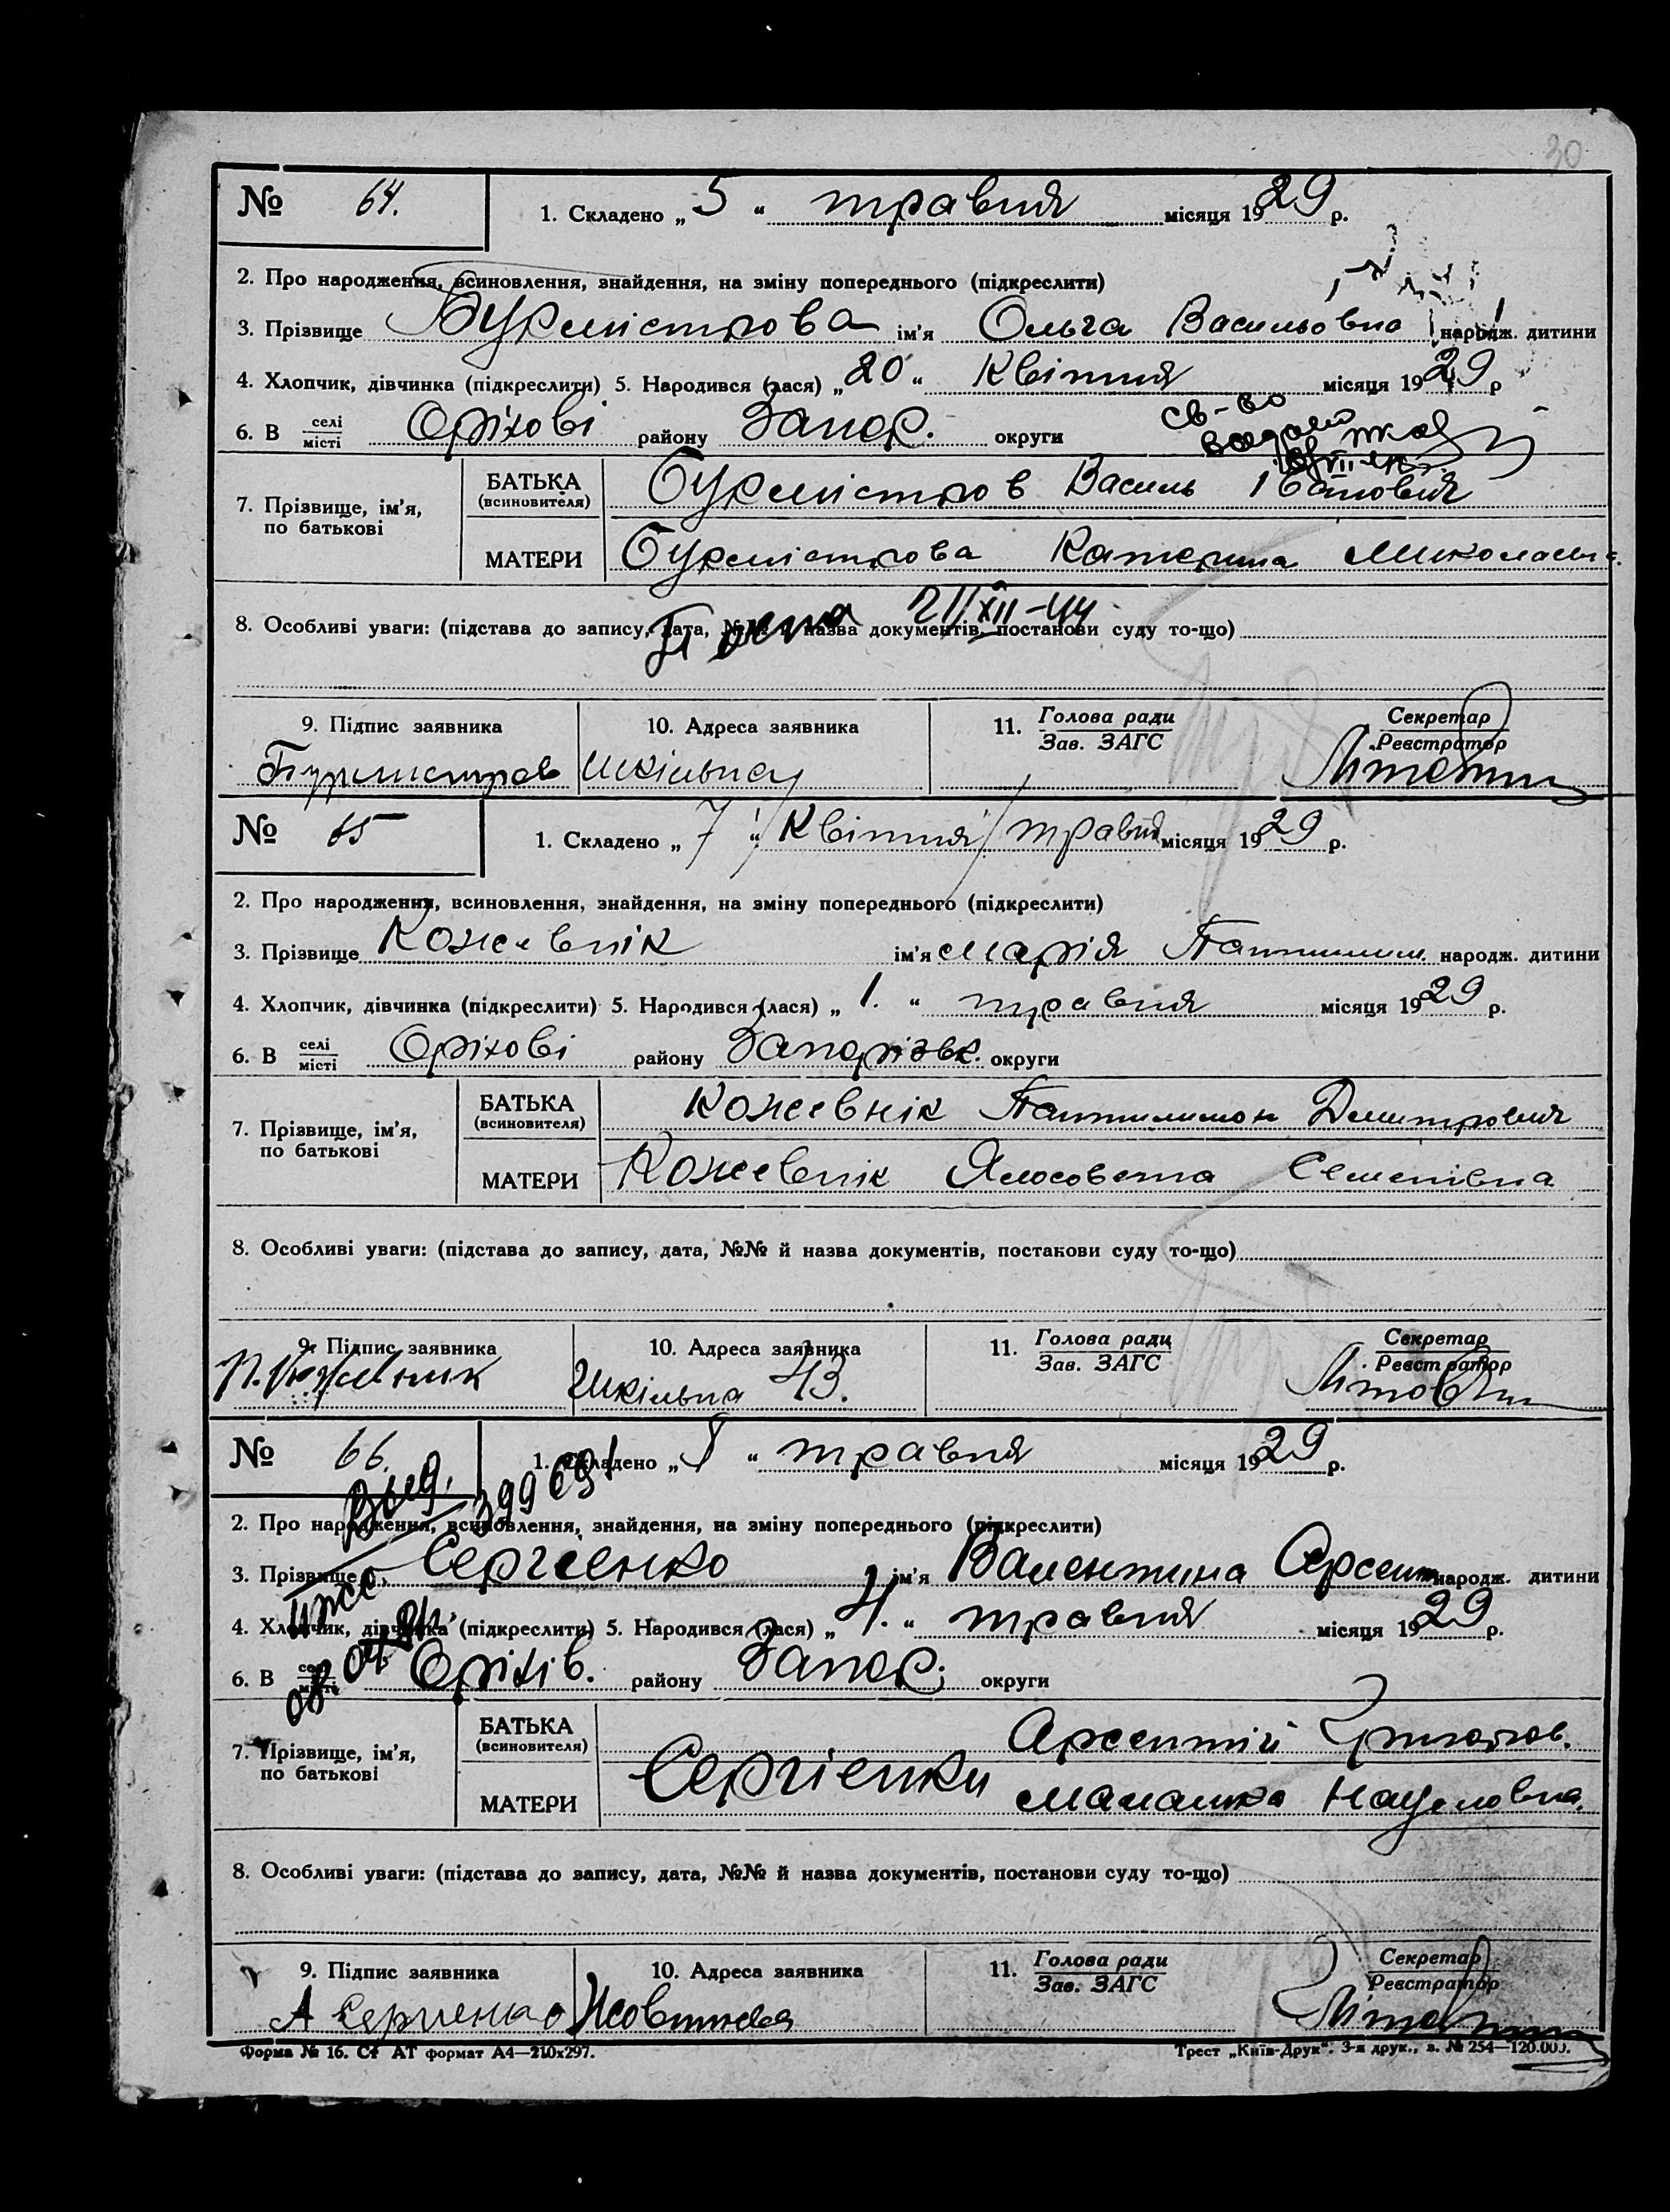 30
№ 64. 1. Складено „ 5 “ травня місяця 1929 р.
2. Про народження, всиновлення, знайдення, на зміну попереднього (підкреслити)
3. Прізвище Бурмістрова ім'я Ольга Васильовна народж. дитини
4. Хлопчик, дівчинка (підкреслити) 5. Народився (лася) „ 20 “ Квітня місяця 1929 р
6. В селі місті Оріхові району Запор. округи
св-во
7. Прізвище, ім'я, по батькові БАТЬКА (всиновителя) Бурмістров Василь Іванович
МАТЕРИ Бурмістрова Катерина Миколаевна
21/XII-44
8. Особливі уваги: (підстава до запису, дата, №№ й назва документів, постанови суду то-що)
9. Підпис заявника 10. Адреса заявника 11. Голова ради Зав. ЗАГС Секретар Реєстратор
Бурмистров Шкільна
№ 65 1. Складено „ 7 “ Квітня травня місяця 1929 р.
2. Про народження, всиновлення, знайдення, на зміну попереднього (підкреслити)
3. Прізвище Кожевнік ім'я Марія народж. дитини
4. Хлопчик, дівчинка (підкреслити) 5. Народився (лася) „ 1. “ травня місяця 1929 р.
6. В селі місті Оріхові району Запорізьк. округи
7. Прізвище, ім'я, по батькові БАТЬКА (всиновителя) Кожевнік Пантилимон Дмитрович
МАТЕРИ Кожевнік Ялосовета Семенівна
8. Особливі уваги: (підстава до запису, дата, №№ й назва документів, постанови суду то-що)
9. Підпис заявника 10. Адреса заявника 11. Голова ради Зав. ЗАГС Секретар Реєстратор
П. Кожевник Шкільна 43.
№ 66. 1. Складено „ 8 “ травня місяця 1929 р.
Выд.
2. Про народження, всиновлення, знайдення, на зміну попереднього (підкреслити)
3. Прізвище Сергіенко ім'я Валентина Арсент народж. дитини
4. Хлопчик, дівчинка (підкреслити) 5. Народився (лася) „ 4. “ травня місяця 1929 р.
6. В селі місті Оріхів. району Запор. округи
7. Прізвище, ім'я, по батькові БАТЬКА (всиновителя) Арсентій Григоров.
Сергіенки
МАТЕРИ Маланка Наумовна.
8. Особливі уваги: (підстава до запису, дата, №№ й назва документів, постанови суду то-що)
9. Підпис заявника 10. Адреса заявника 11. Голова ради Зав. ЗАГС Секретар Реєстратор
А Сергиенко Жовтнева
Форма № 16. Ст АТ формат А4—210x297. Трест „Київ-Друк“. 3-я друк., з. № 254—120.000.